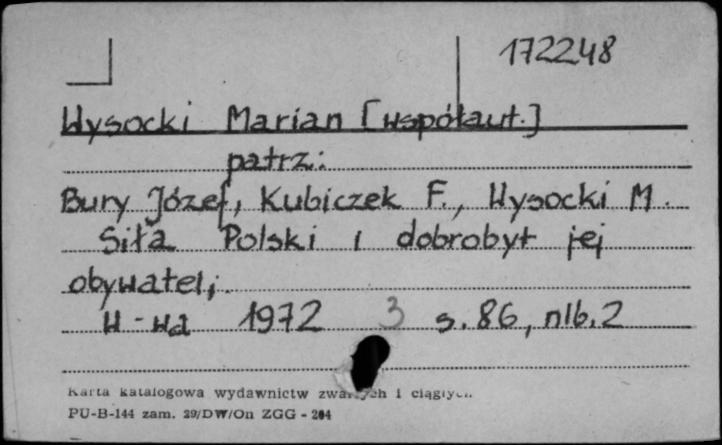 172248
Wysocki Marian [współaut.]
patrz:
Bury Józef, Kubiczek F., Wysocki M.
Siła Polski i dobrobyt jej
obywateli.
W-wa 1972 3 s. 86, nlb. 2
Karta katalogowa wydawnictw zwartych i ciągłych
PU-B-144 zam. 29/DW/On ZGG - 204